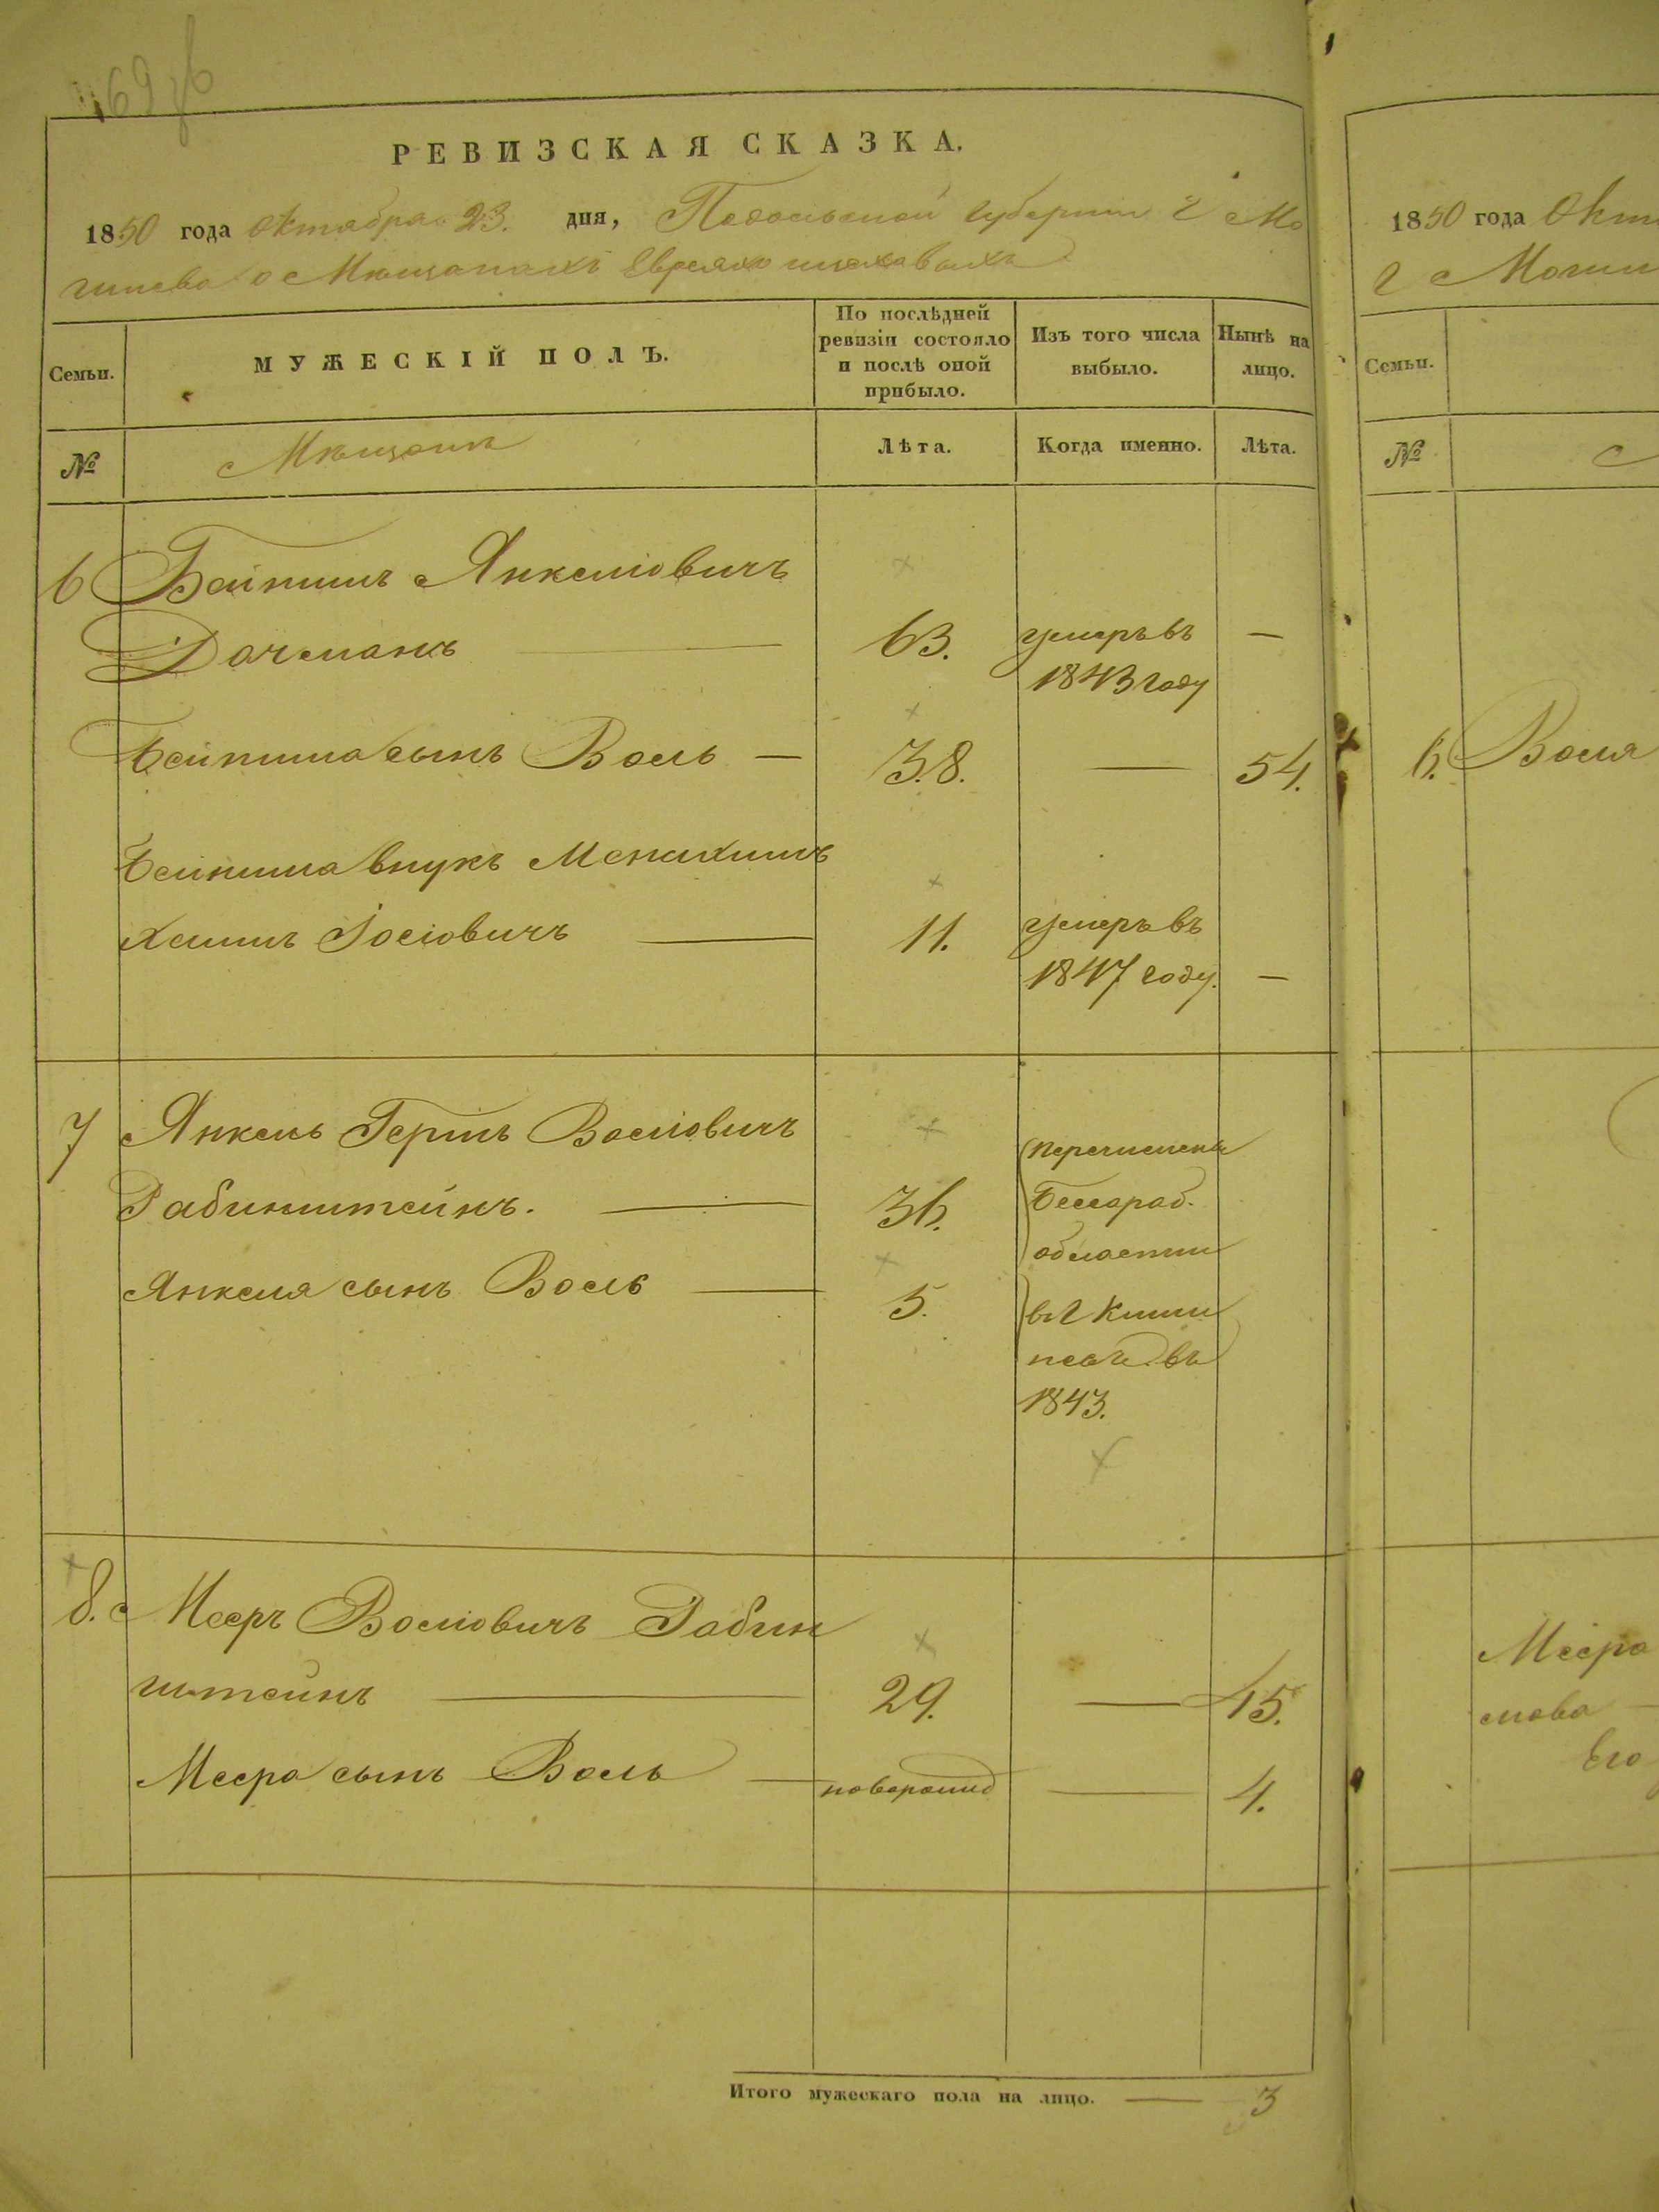 69
РЕВИЗСКАЯ СКАЗКА.
1850 года Октября 23. дня, Подольской губернии г Мо
гилева о Мѣщанахъ Евреяхъ
Семьи.
МУЖЕСКІЙ ПОЛЪ.
По послѣдней ревизіи состояло и послѣ оной прибыло.
Изъ того числа выбыло.
Нынѣ на лицо.
№
Мѣщани
Лѣта.
Когда именно.
Лѣта.
6 Бейнишъ Янкеліовичъ
63. умеръ въ —
1843 году
Бейниша сынъ Воль — 38. — 54.
Бейниша внукъ Менахимъ
Хаимъ Іосіовичъ — 11. умеръ въ
1847 году. —
7 Янкель Гершъ Вольіовичъ
Рабинштейнъ. — 36.
перечислены
Бессараб.
области
Янкеля сынъ Воль — 5.
в г Киши
невъ въ
1843.
8. Мееръ Вольіовичъ Рабин
штейнъ — 29. — 45.
Меера сынъ Воль — новорожд — 4.
Итого мужескаго пола на лицо. — 3
1850 года Окт
г Моги
Семьи.
№
6. Воля
Меера
Его